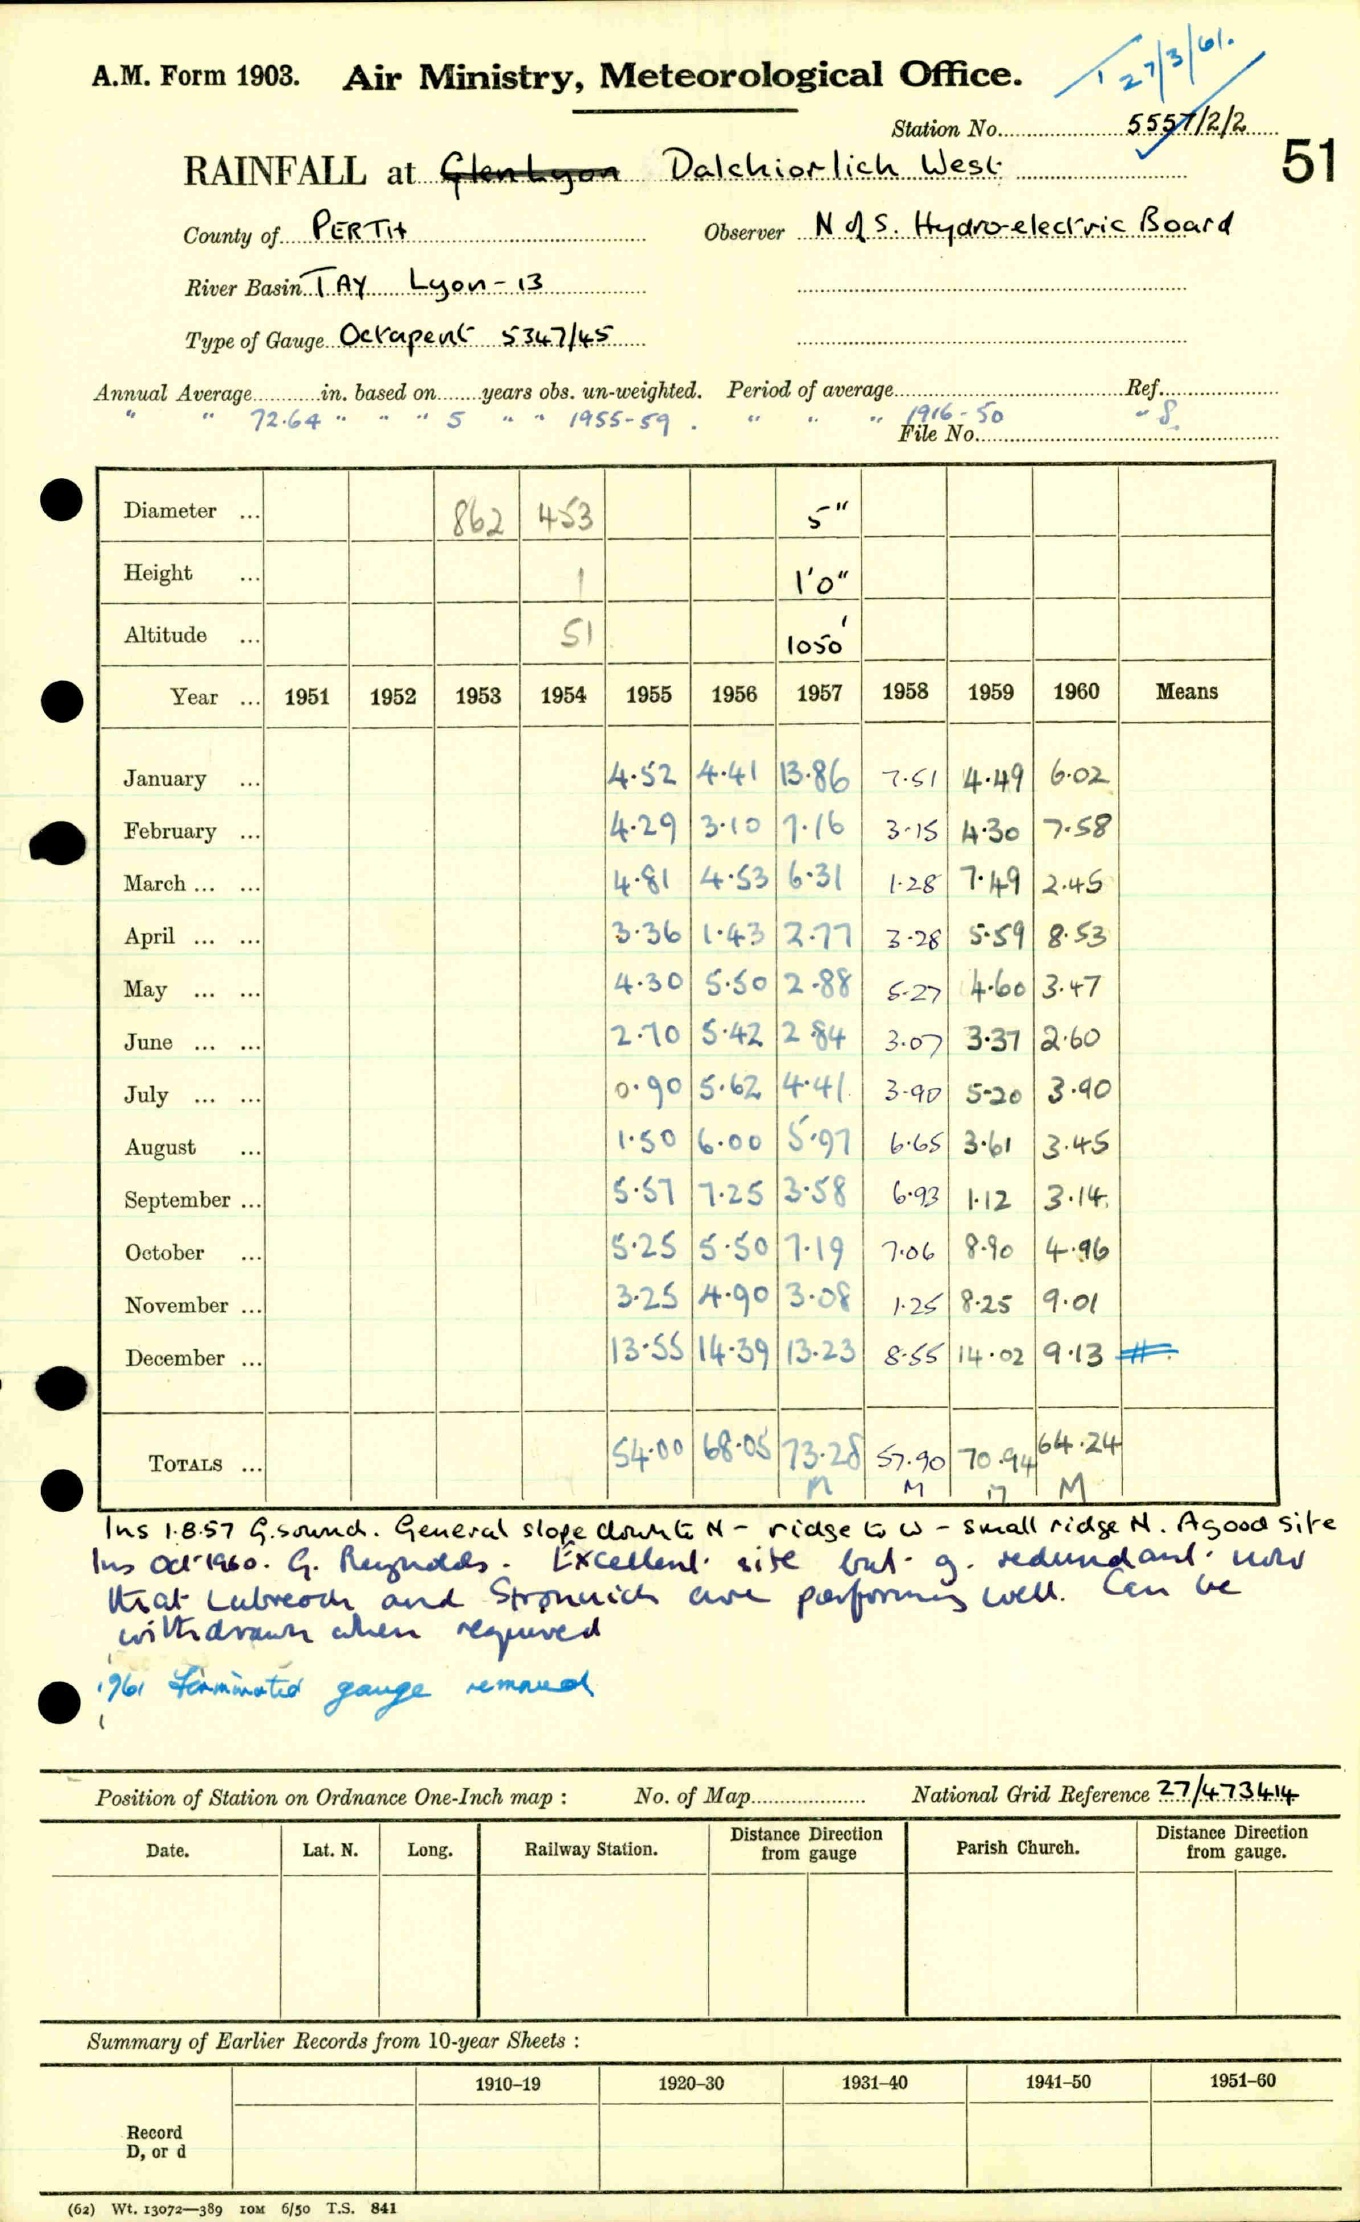 27/3/61.
A.M. Form 1903. Air Ministry, Meteorological Office.
Station No. 5557/2/2
51
RAINFALL at Glen Lyon Dalchiorlich West
County of PERTH Observer N of S. Hydro-electric Board
River Basin TAY Lyon - 13
Type of Gauge Octapent 5347/45
Annual Average in. based on years obs. un-weighted. Period of average Ref.
" " 72.64 " " " 5 " " 1955-59 . " " " 1916-50 " 8.
File No.
Diameter ... 862 453 5"
Height ... 1 1'0"
Altitude ... 51 1050'
Year ... 1951 1952 1953 1954 1955 1956 1957 1958 1959 1960 Means
January ... 4.52 4.41 13.86 7.51 4.49 6.02
February ... 4.29 3.10 7.16 3.15 4.30 7.58
March ... ... 4.81 4.53 6.31 1.28 7.49 2.45
April ... ... 3.36 1.43 2.77 3.28 5.59 8.53
May ... ... 4.30 5.50 2.88 5.27 4.60 3.47
June ... ... 2.70 5.42 2.84 3.07 3.37 2.60
July ... ... 0.90 5.62 4.41 3.90 5.20 3.90
August ... 1.50 6.00 5.97 6.65 3.61 3.45
September ... 5.57 7.25 3.58 6.93 1.12 3.14
October ... 5.25 5.50 7.19 7.06 8.90 4.96
November ... 3.25 4.90 3.08 1.25 8.25 9.01
December ... 13.55 14.39 13.23 8.55 14.02 9.13
TOTALS ... 54.00 68.05 73.28 57.90 70.94 64.24
M M M M
Ins 1.8.57 G. sound. General slope down to N - ridge to W - small ridge N. A good site
Ins Oct 1960. G. Reynolds. Excellent site but g. redundant now
that Lubreoch and Stronuich are performing well. Can be
withdrawn when required
1961 terminated gauge removed
Position of Station on Ordnance One-Inch map : No. of Map National Grid Reference 27/473414
Date. Lat. N. Long. Railway Station. Distance Direction from gauge Parish Church. Distance Direction from gauge.
Summary of Earlier Records from 10-year Sheets :
1910–19 1920–30 1931–40 1941–50 1951–60
Record
D, or d
(62) Wt. 13072—389 10M 6/50 T.S. 841